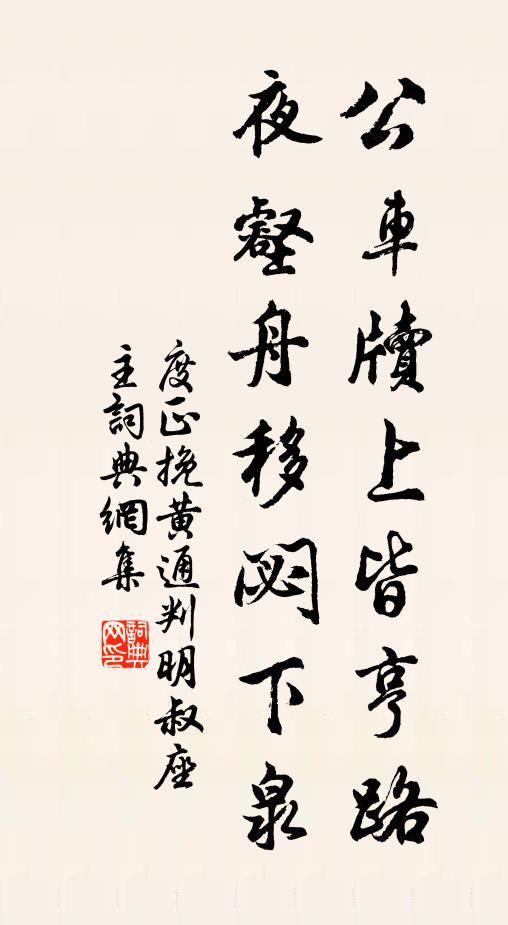 公車牘上皆亨路
夜壑舟移閟下泉
度正挽黃通判明叔座
主詞典網集
詞典
网印